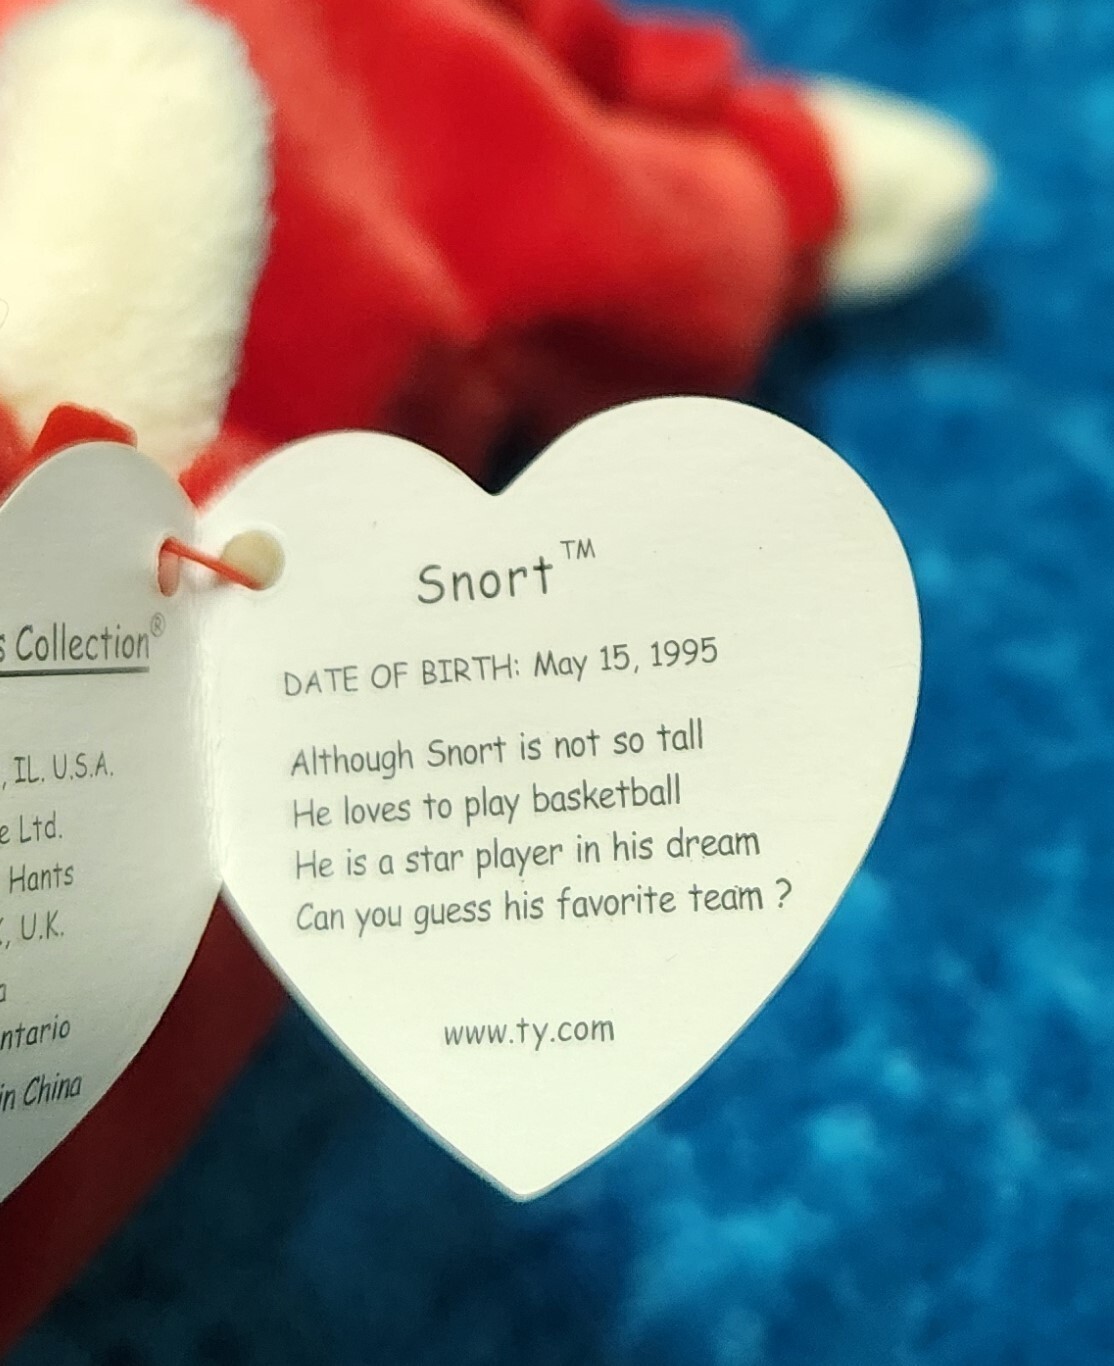 Collection®
, IL. U.S.A.
Ltd.
Hants
, U.K.
in China
Snort™
DATE OF BIRTH: May 15, 1995
Although Snort is not so tall
He loves to play basketball
He is a star player in his dream
Can you guess his favorite team ?
www.ty.com